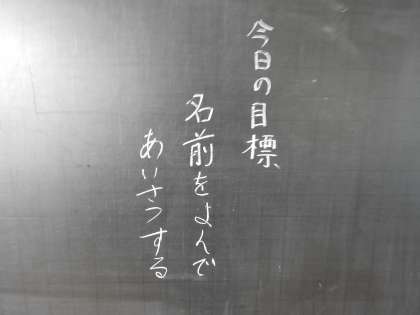 今日の目標、
名前をよんで
あいさつする